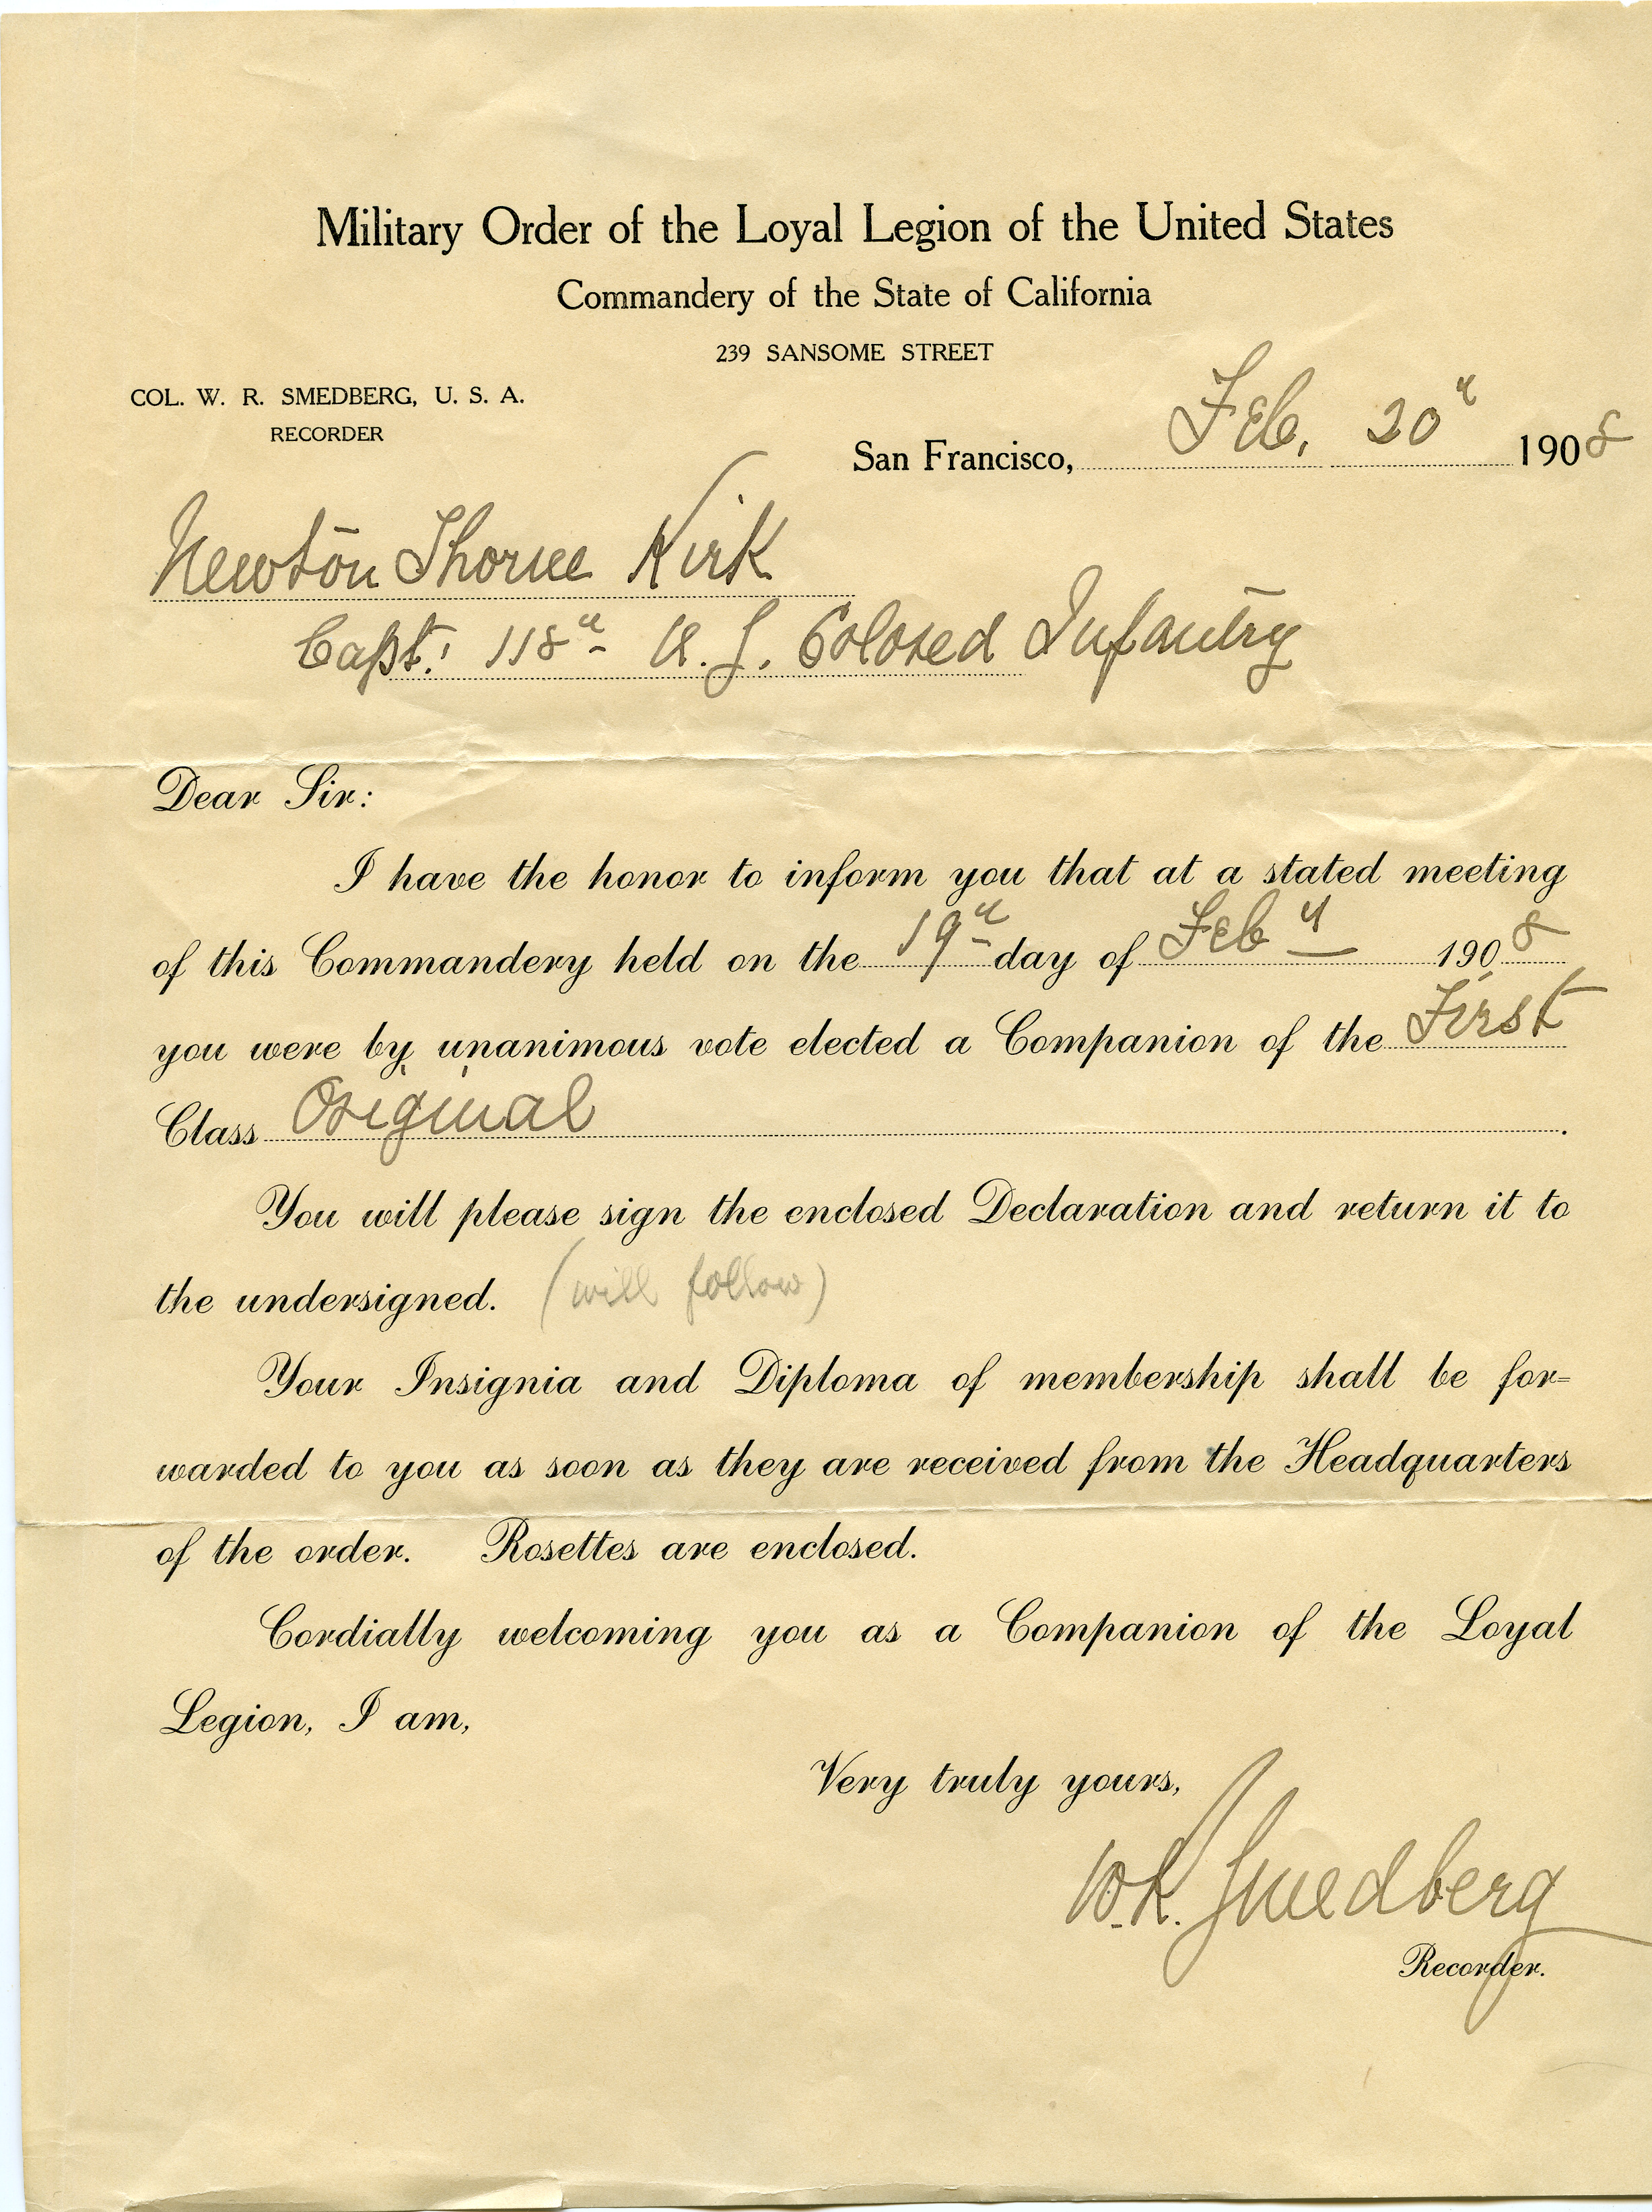 Military Order of the Loyal Legion of the United States
Commandery of the State of California
239 SANSOME STREET
COL. W. R. SMEDBERG, U. S. A.
RECORDER
San Francisco, Feb. 20th 1908
Newton Thorne Kirk
Capt. 118th U. S. Colored Infantry
Dear Sir:
I have the honor to inform you that at a stated meeting
of this Commandery held on the 19th day of Feby 1908
you were by unanimous vote elected a Companion of the First
Class Original.
You will please sign the enclosed Declaration and return it to
the undersigned. (will follow)
Your Insignia and Diploma of membership shall be for-
warded to you as soon as they are received from the Headquarters
of the order. Rosettes are enclosed.
Cordially welcoming you as a Companion of the Loyal
Legion, I am,
Very truly yours,
W.R. Smedberg
Recorder.